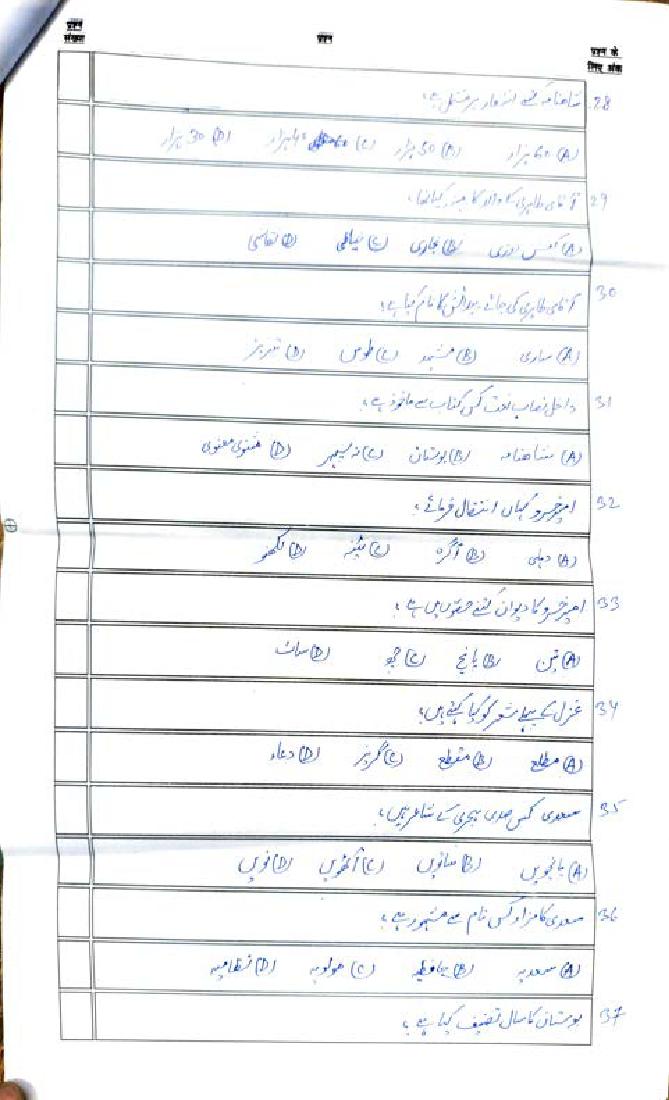 प्रश्न संख्या
प्रश्न
प्रश्न के लिए अंक
28 شاهنامہ کتنے اشعار پر مشتمل ہے؟
(A) 60 ہزار (B) 50 ہزار (C) 40 ہزار (D) 30 ہزار
29 آقای طاہری کا والد کا پیشہ کیا تھا؟
(A) دوزی (B) نجاری (C) خیاطی (D) نقاشی
30 آقای طاہری کی جائے پیدائش کا نام کیا ہے؟
(A) ساری (B) مشہد (C) طوس (D) تبریز
31 داخل نصاب نعت کس کتاب سے ماخوذ ہے؟
(A) شاهنامہ (B) بوستان (C) نہ سپہر (D) مثنوی معنوی
32 امیر خسرو کہاں انتقال فرمائے؟
(A) دہلی (B) آگرہ (C) پٹنہ (D) لکھنو
33 امیر خسرو کا دیوان کتنے حصوں میں ہے؟
(A) تین (B) پانچ (C) چھ (D) سات
34 غزل کے پہلے شعر کو کیا کہتے ہیں؟
(A) مطلع (B) مقطع (C) گریز (D) دعاء
35 سعدی کس صدی ہجری کے شاعر ہیں؟
(A) پانچویں (B) ساتویں (C) آٹھویں (D) نویں
36 سعدی کا مزار کس نام سے مشہور ہے؟
(A) سعدیہ (B) حافظیہ (C) مولویہ (D) نظامیہ
37 بوستان کا سال تصنیف کیا ہے؟